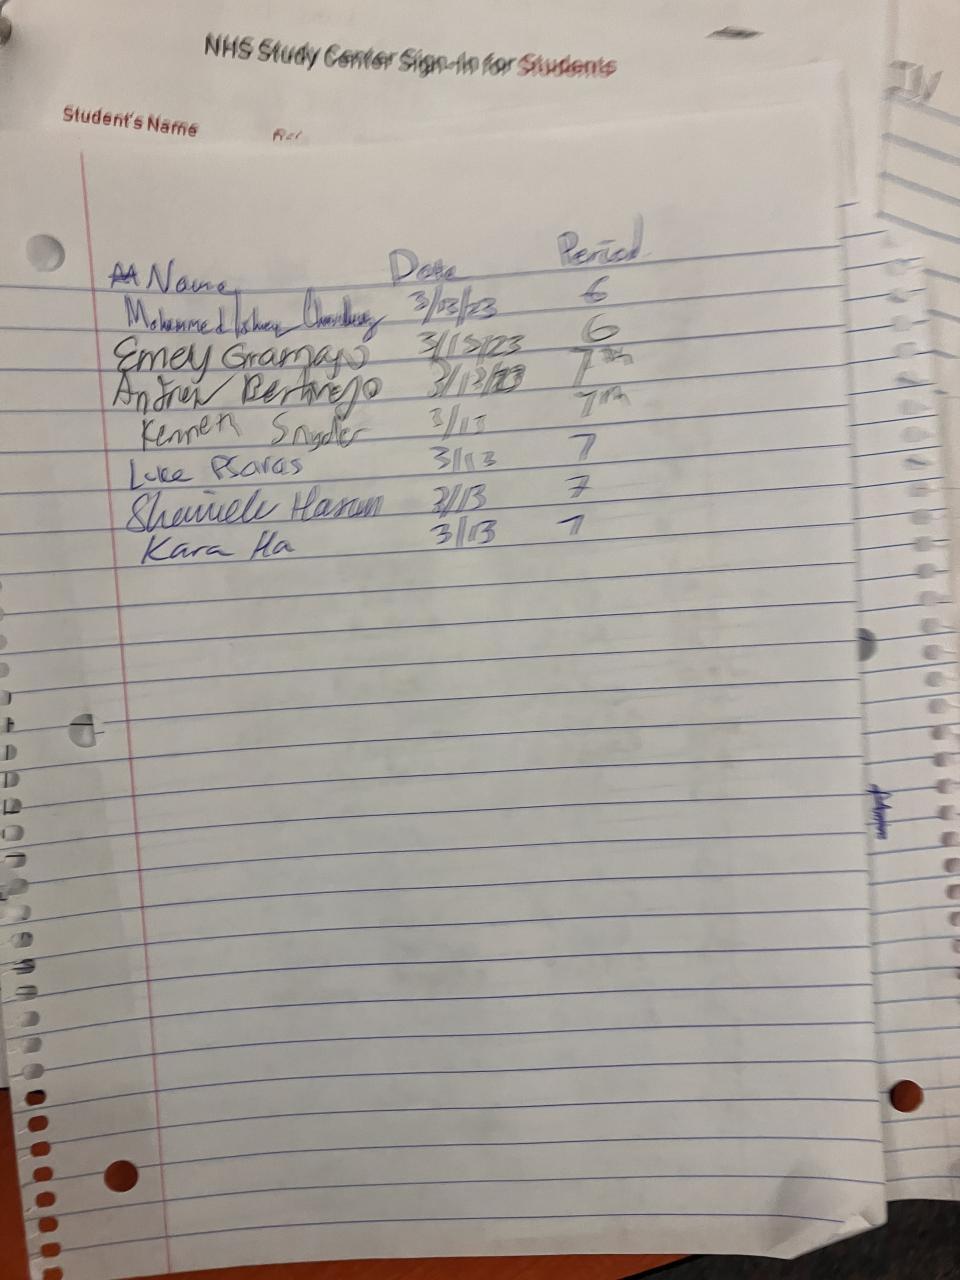 NHS Study Center Sign-In for Students
Student's Name
Name Date Period
Mohammed 3/13/23 6
Emely Gramajo 3/15/23 6
Andrew 3/13/23 7th
Kenneth Snyder 3/13 7th
Luke Psaras 3/13 7
Hasan 3/13 7
Kara Ha 3/13 7